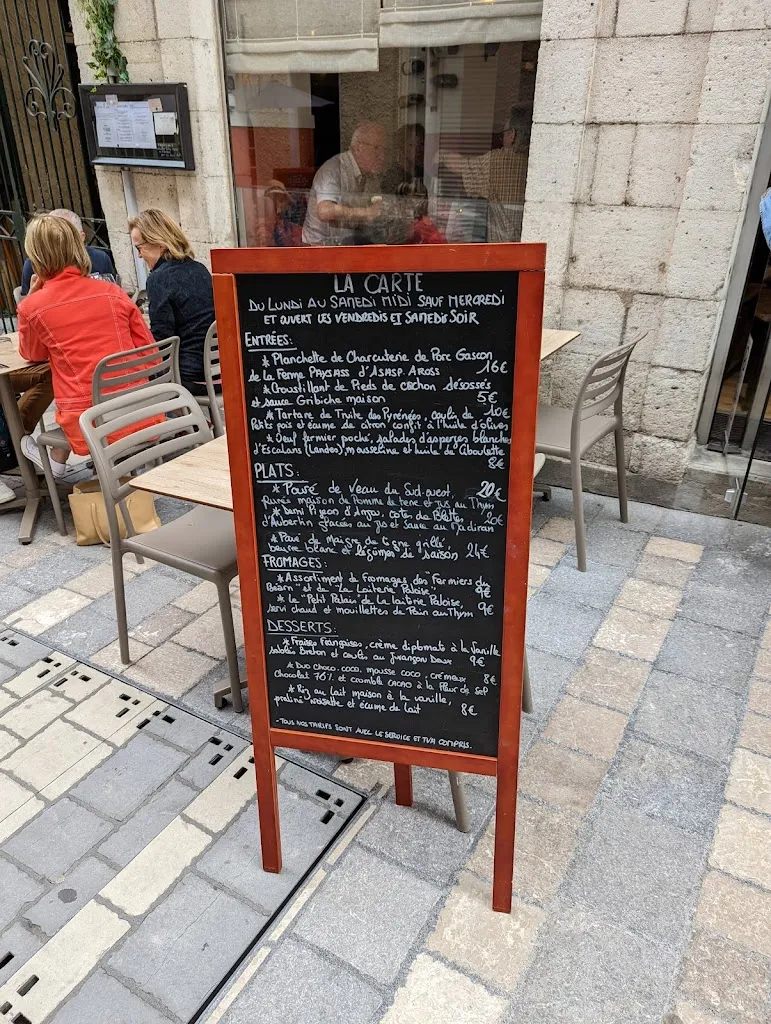 LA CARTE
DU LUNDI AU SAMEDI MIDI SAUF MERCREDI
ET OUVERT LES VENDREDIS ET SAMEDIS SOIR
ENTRÉES:
* Planchette de Charcuterie de Porc Gascon
de la Ferme PAYSASS d'ASASP AROSS 16€
* Croustillant de Pieds de cochon désossés
et sauce Gribiche maison 5€
* Tartare de Truite des Pyrénées, coulis de 10€
Petits pois et écume de citron confit à l'huile d'olives
* Oeuf fermier poché, salades d'asperges blanches
d'Escalans (Landes), mousseline et huile de Ciboulette
8€
PLATS:
* Pavé de Veau du Sud-ouest, 20€
purée maison de pomme de terre et jus au Thym
* Demi Pigeon d'Anjou, cotes de Blettes 20€
d'Aubertin glacées au jus et sauce au Madiran
* Pavé de Maigre de ligne grillé,
beurre blanc et légumes de saison 24€
FROMAGES:
* Assortiment de Fromages des "Fermiers du
Béarn" et de "La Laiterie Paloise", 9€
* Le "Petit Palois" de La Laiterie Paloise,
servi chaud et mouillettes de Pain au Thym 9€
DESSERTS:
* Fraises Françaises, crème diplomate à la Vanille
sablés Breton et coulis au Jurançon Doux 9€
* Duo choco.coco, mousse coco, crémeux 8€
Chocolat 76% et crumble cacao à la Fleur de sel
* Riz au Lait maison à la vanille,
praliné noisette et écume de lait 8€
- TOUS NOS TARIFS SONT AVEC LE SERVICE ET TVA COMPRIS.